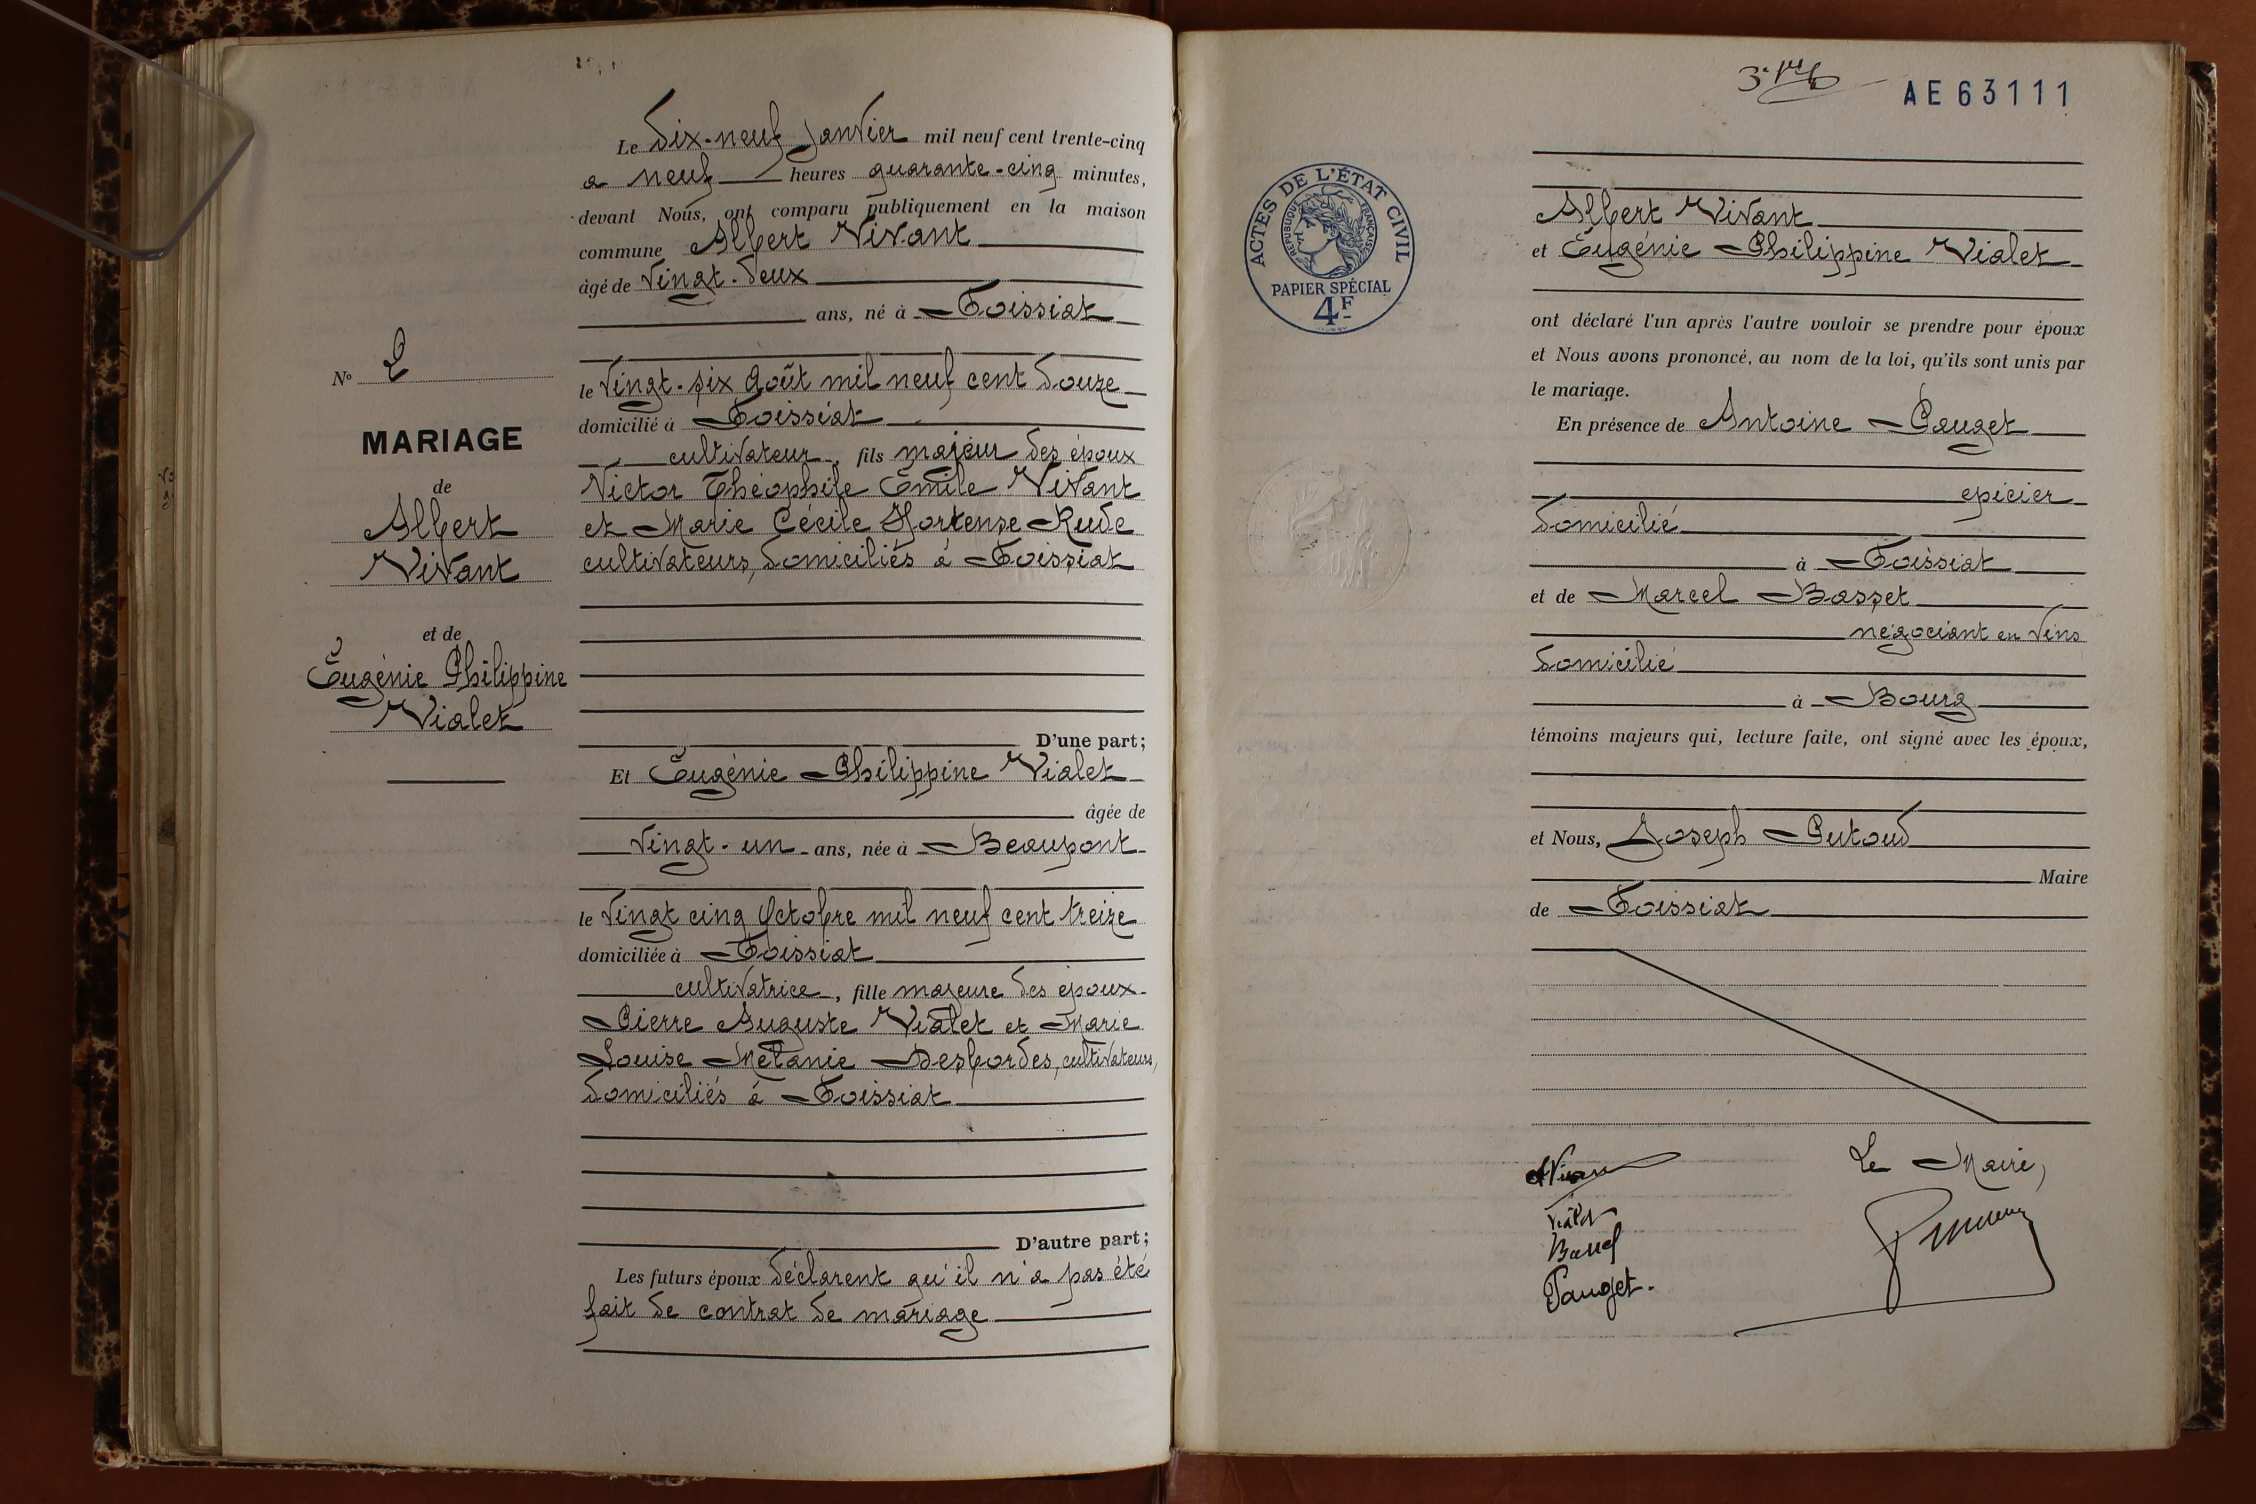 Le dix-neuf Janvier mil neuf cent trente-cinq
a neuf heures quarante-cinq minutes,
devant Nous, ont comparu publiquement en la maison
commune Albert Vivant
âgé de vingt-deux
ans, né à Foissiat
le vingt-six Août mil neuf cent douze
domicilié à Foissiat
cultivateur, fils majeur des époux
Victor Théophile Emile Vivant
et Marie Cécile Hortense Rude
cultivateurs, domiciliés à Foissiat
D'une part;
Et Eugénie Philippine Vialet
âgée de
vingt-un ans, née à Beaupont
le vingt cinq Octobre mil neuf cent treize
domiciliée à Foissiat
cultivatrice, fille majeure des époux
Pierre Auguste Vialet et Marie
Louise Mélanie Desbordes, cultivateurs,
domiciliés à Foissiat
D'autre part;
Les futurs époux déclarent qu'il n'a pas été
fait de contrat de mariage
No 2
MARIAGE
de
Albert
Vivant
et de
Eugénie Philippine
Vialet
AE63111
ACTES DE L'ÉTAT CIVIL
RÉPUBLIQUE FRANÇAISE
PAPIER SPÉCIAL
4F
Albert Vivant
et Eugénie Philippine Vialet
ont déclaré l'un après l'autre vouloir se prendre pour époux
et Nous avons prononcé, au nom de la loi, qu'ils sont unis par
le mariage.
En présence de Antoine Pauget
épicier
domicilié
à Foissiat
et de Marcel Basset
négociant en vins
domicilié
à Bourg
témoins majeurs qui, lecture faite, ont signé avec les époux,
et Nous, Joseph Putoud
Maire
de Foissiat
Le Maire,
Vialet
Pauget.